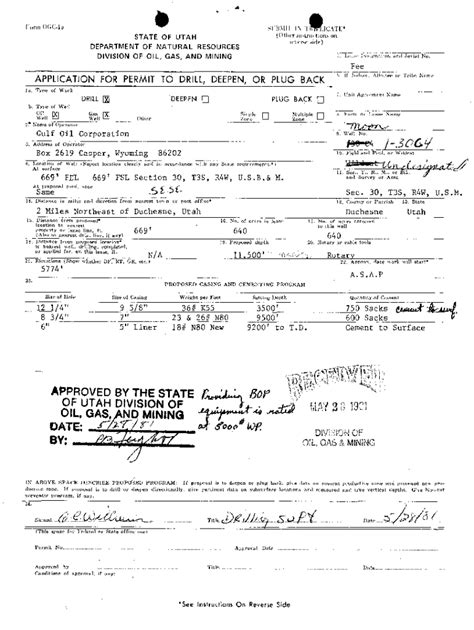 Form OGC-1a
SUBMIT IN TRIPLICATE*
(Other instructions on
reverse side)
STATE OF UTAH
DEPARTMENT OF NATURAL RESOURCES
DIVISION OF OIL, GAS, AND MINING
5. Lease Designation and Serial No.
Fee
APPLICATION FOR PERMIT TO DRILL, DEEPEN, OR PLUG BACK
6. If Indian, Allottee or Tribe Name
1a. Type of Work
DRILL ☒ DEEPEN ☐ PLUG BACK ☐
7. Unit Agreement Name
b. Type of Well
Oil Well ☒ Gas Well ☒ Other Single Zone ☐ Multiple Zone ☐
8. Farm or Lease Name
Moon
2. Name of Operator
Gulf Oil Corporation
9. Well No.
1-30C4
3. Address of Operator
Box 2619 Casper, Wyoming 86202
10. Field and Pool, or Wildcat
Undesignated
4. Location of Well (Report location clearly and in accordance with any State requirements.*)
At surface
669' FEL 669' FSL Section 30, T3S, R4W, U.S.B.& M.
11. Sec., T., R., M., or Blk.
and Survey or Area
At proposed prod. zone
Same SESE
Sec. 30, T3S, R4W, U.S.M.
14. Distance in miles and direction from nearest town or post office*
2 Miles Northeast of Duchesne, Utah
12. County or Parrish 13. State
Duchesne Utah
15. Distance from proposed*
location to nearest
property or lease line, ft.
(Also to nearest drlg. line, if any)
669'
16. No. of acres in lease
640
17. No. of acres assigned
to this well
640
18. Distance from proposed location*
to nearest well, drilling, completed,
or applied for, on this lease, ft.
N/A
19. Proposed depth
11,500'
20. Rotary or cable tools
Rotary
21. Elevations (Show whether DF, RT, GR, etc.)
5774'
22. Approx. date work will start*
A.S.A.P
23. PROPOSED CASING AND CEMENTING PROGRAM
Size of Hole Size of Casing Weight per Foot Setting Depth Quantity of Cement
12 1/4" 9 5/8" 36# K55 3500' 750 Sacks cement to surf.
8 3/4" 7" 23 & 26# N80 9500' 600 Sacks
6" 5" Liner 18# N80 New 9200' to T.D. Cement to Surface
APPROVED BY THE STATE
OF UTAH DIVISION OF
OIL, GAS, AND MINING
DATE: 5/28/81
BY:
Providing BOP
equipment is rated
at 5000# WP.
RECEIVED
MAY 28 1981
DIVISION OF
OIL, GAS & MINING
IN ABOVE SPACE DESCRIBE PROPOSED PROGRAM: If proposal is to deepen or plug back, give data on present productive zone and proposed new productive zone. If proposal is to drill or deepen directionally, give pertinent data on subsurface locations and measured and true vertical depths. Give blowout
preventer program, if any.
24.
Signed Title Drilling Supt Date 5/28/81
(This space for Federal or State office use)
Permit No. Approval Date
Approved by Title Date
Conditions of approval, if any:
*See Instructions On Reverse Side